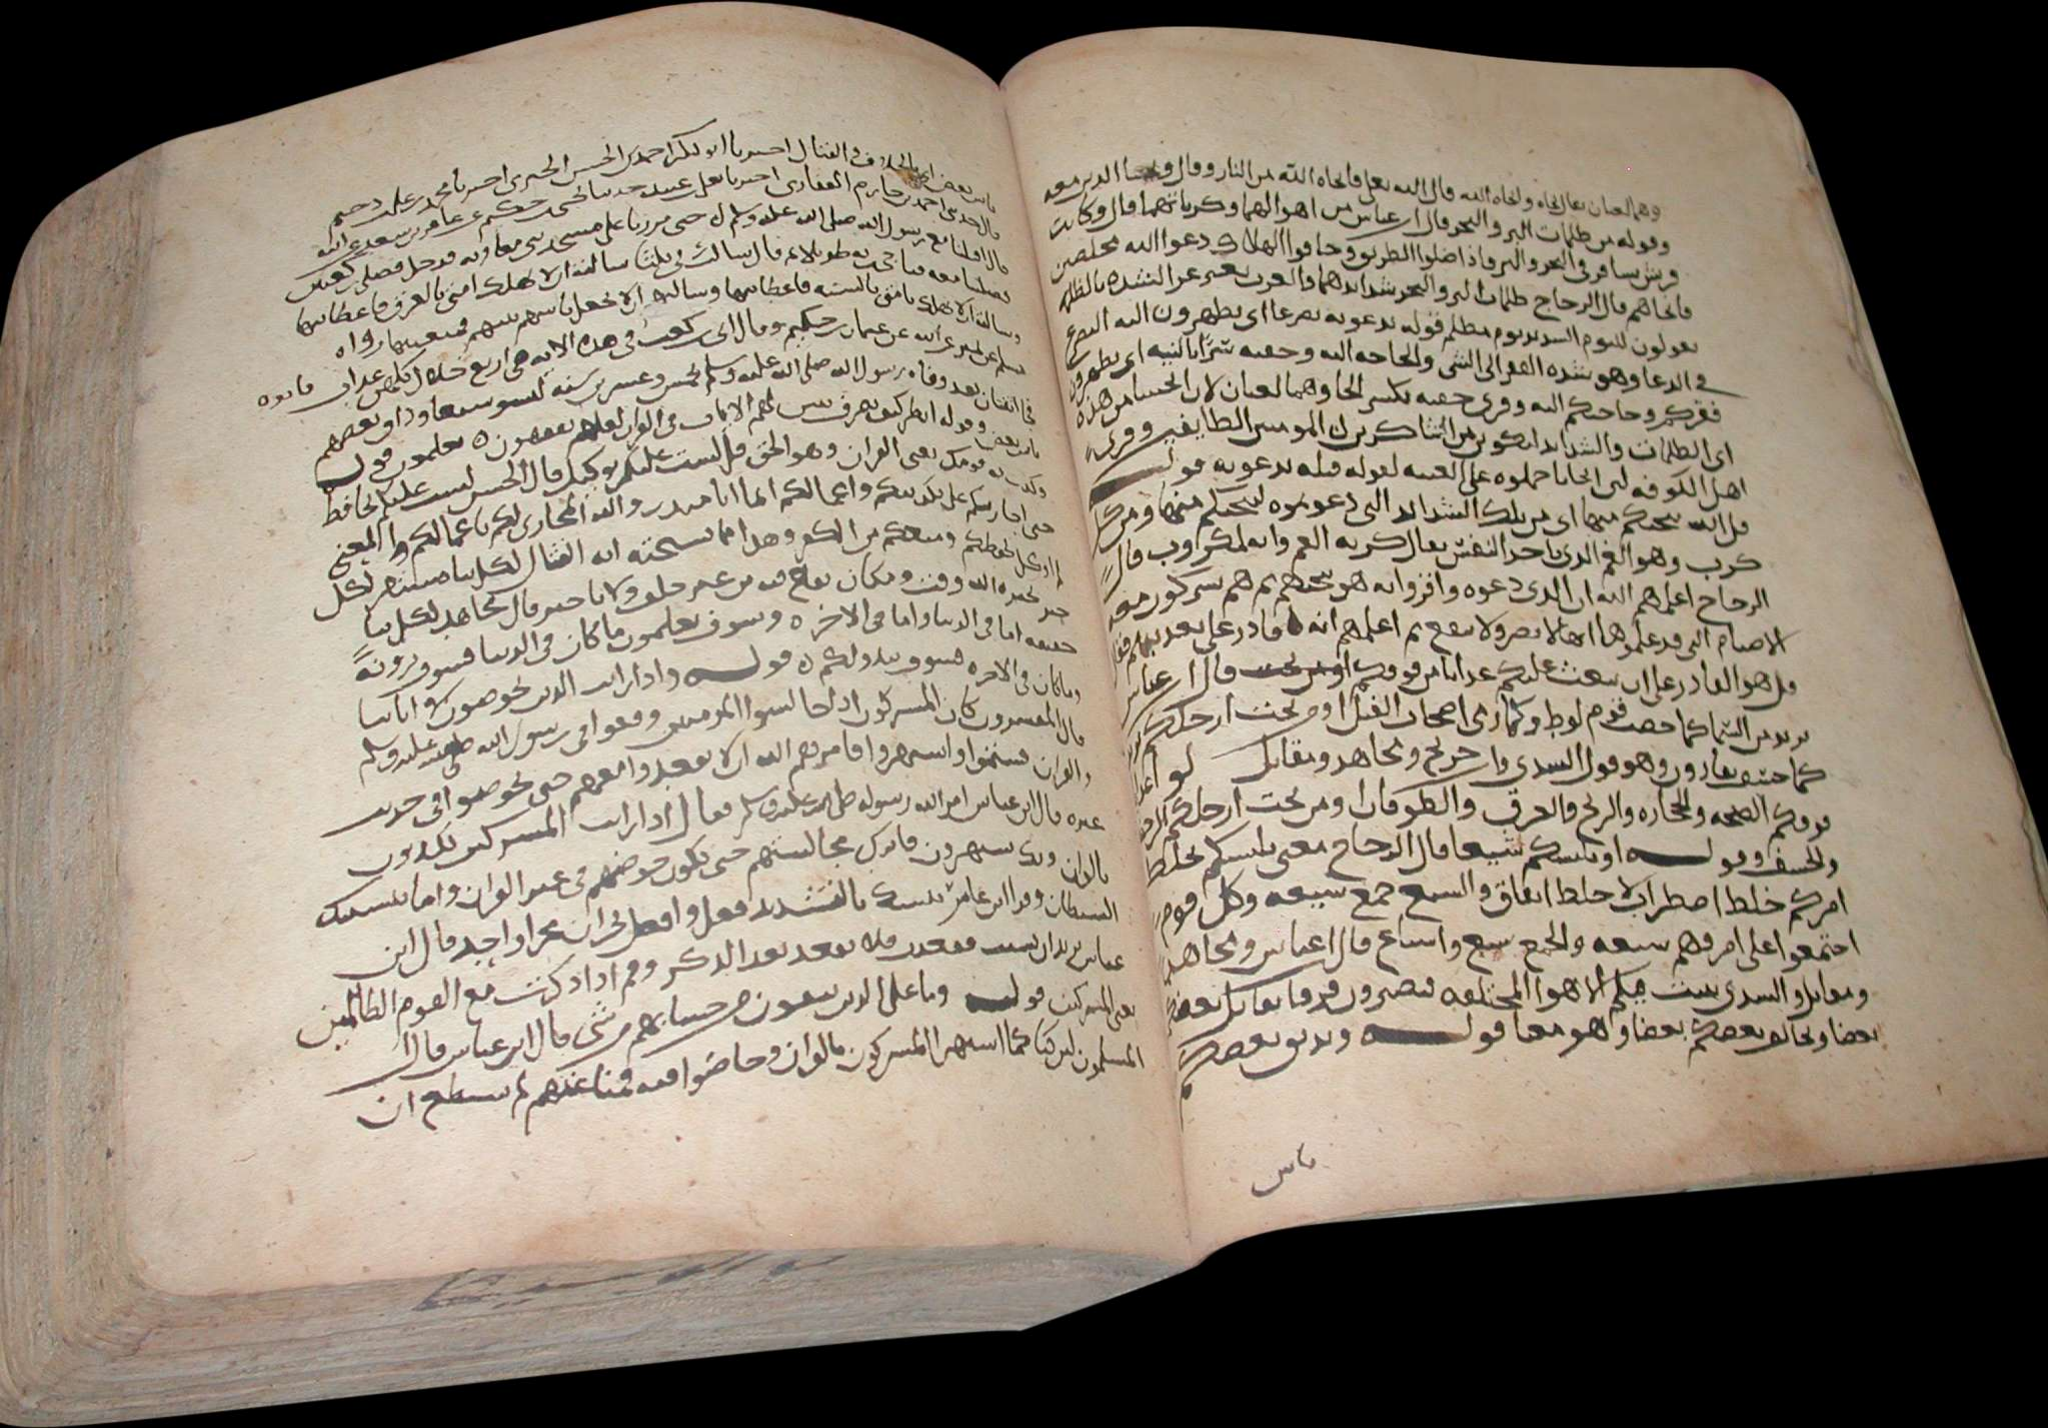 وهما لغتان يقال نجاه وانجاه الله قال الله تعلى فانجاه الله من النار وقال ونجينا الذين معه
وقوله من ظلمات البر والبحر قال ابن عباس من اهوالهما وكرباتهما قال وكانت
قريش تسافر في البحر والبر فاذا ضلوا الطريق وخافوا الهلاك دعوا الله مخلصين
فانجاهم قال الزجاج ظلمات البر والبحر شدايدهما والعرب تعبر عن الشده بالظلمه
يقولون لليوم الشديد يوم مظلم قوله تدعونه تضرعا اي تظهرون اليه التضرع
في الدعا وهو شده الفقر الى الشي والحاجه اليه وخفيه سرا بالنيه اي تظهرون
فقركم وحاجتكم اليه وقرى خفيه بكسر الخا وهما لغتان لان انجيتنا من هذه
اي الظلمات والشدايد لنكونن من الشاكرين المومنين الطايعين وقرى
اهل الكوفه لين انجانا حملوه على الغيبه لقوله قبله تدعونه قوله
قل الله ينجيكم منها اي من تلك الشدايد التي دعوتموه لينجيكم منها ومن كل
كرب وهو الغم الذي ياخذ النفس يقال كربه الغم وانه لمكروب قال
الزجاج اعلمهم الله ان الذي دعوه واقروا انه هو ينجيهم ثم هم يشركون معه
الاصنام التي قد علموها انها لا تضر ولا تنفع ثم اعلمهم انه قادر على تعذيبهم فقال
قل هو القادر على ان يبعث عليكم عذابا من فوقكم او من تحت قال ابن عباس
يريد من السما كما حصب قوم لوط وكما رمى اصحاب الفيل او من تحت ارجلكم يريد
كما خسف بقارون وهو قول السدي وابن جريج ومجاهد ومقاتل
فوقكم الصيحه والحجاره والريح والغرق والطوفان او من تحت ارجلكم الرجفه
والخسف وقوله او يلبسكم شيعا قال الزجاج معنى يلبسكم يخلط
امركم خلط اضطراب لا خلط اتفاق والشيع جمع شيعه وكل قوم
اجتمعوا على امر فهم شيعه والجمع شيع واشياع قال ابن عباس ومجاهد
ومقاتل والسدي يبث فيكم الاهوا المختلفه فتصيرون فرقا يقاتل بعضكم
بعضا ويخالف بعضكم بعضا وهو معنا قوله ويذيق بعضكم
باس
باس بعض اي بالخلاف والقتال اخبرنا ابو بكر احمد بن الحسن الحيري اخبرنا محمد بن علي بن دحيم
قال حدثني احمد بن حازم الغفاري اخبرنا يعلى بن عبيد حدثنا عثمان بن حكيم عن عامر بن سعد عن ابيه
قال اقبلنا مع رسول الله صلى الله عليه وسلم حتى مررنا على مسجد بني معاويه فدخل فصلى ركعتين
وصلينا معه فناجى ربه طويلا ثم قال سالت ربي ثلثا سالته ان لا يهلك امتي بالغرق فاعطانيها
وسالته ان لا يهلك امتي بالسنه فاعطانيها وسالته ان لا يجعل باسهم بينهم فمنعنيها رواه
قوله وقال ابي بن كعب في هذه الايه هي اربع خلال وكلهن عذاب
اثنتان بعد وفاه رسول الله صلى الله عليه وسلم بخمس وعشرين سنه لبسوا شيعا وذاق بعضهم
باس بعض وقوله انظر كيف نصرف نبين لهم الايات في القران لعلهم يفقهون يعلمون قوله
وكذب به قومك يعني القران وهو الحق قل لست عليكم بوكيل قال الحسن لست عليكم بحافظ
حتى اجازيكم على تكذيبكم واعمالكم انما انا منذر والله المجازي لكم باعمالكم والمعنى
خبر يخبره الله وقت ومكان يقع فيه من غير خلف ولا تاخير قال مجاهد لكل نبا
حقيقه اما في الدنيا واما في الاخره وسوف تعلمون ما كان في الدنيا فسوف ترونه
وما كان في الاخره فسوف يبدو لكم قوله واذا رايت الذين يخوضون في اياتنا
قال المفسرون كان المشركون اذا جالسوا المومنين وقعوا في رسول الله صلى الله عليه وسلم
والقران فشتموا واستهزوا فامرهم الله ان لا يقعدوا معهم حتى يخوضوا في حديث
غيره قال ابن عباس امر الله رسوله صلى الله عليه وسلم فقال اذا رايت المشركين يكذبون
بالقران وبك ويستهزون فاترك مجالستهم حتى يكون خوضهم في غير القران واما ينسينك
الشيطان وقرا ابن عامر ينسينك بالتشديد وفعل وافعل يجريان مجرا واحد قال ابن
عباس يريد ان نسيت فقعدت فلا تقعد بعد الذكرى وقم اذا ذكرت مع القوم الظالمين
يعني المشركين قوله وما على الذين يتقون من حسابهم من شي قال ابن عباس قال
المسلمون لين كنا كلما استهزا المشركون بالقران وخاضوا فيه قمنا عنهم لم نستطع ان